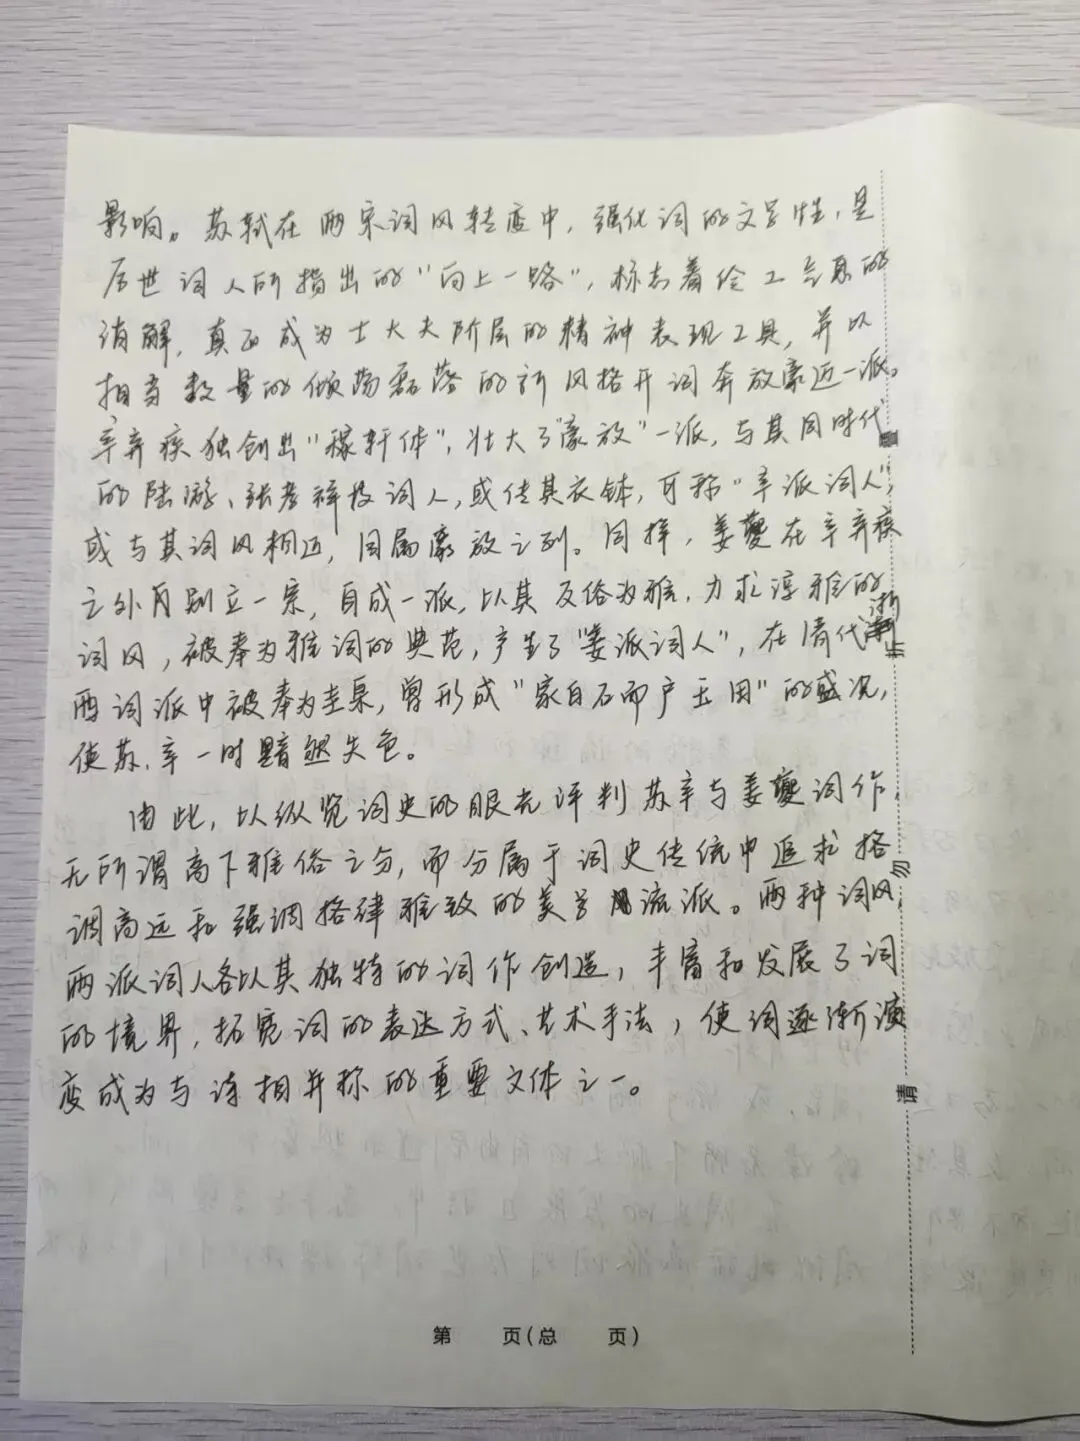 影响。苏轼在两宋词风转变中，强化词的文学性，是
后世词人所指出的“向上一路”，标志着伶工气息的
消解，真正成为士大夫阶层的精神表现工具，并以
相当数量的倾荡磊落的新风格开词奔放豪迈一派。
辛弃疾独创出“稼轩体”，壮大了“豪放”一派，与其同时代
的陆游、张孝祥等词人，或传其衣钵，可称“辛派词人”，
或与其词风相近，同属豪放之列。同样，姜夔在辛弃疾
之外另别立一宗，自成一派，以其反俗为雅，力求淳雅的
词风，被奉为雅词的典范，产生了“姜派词人”，在清代浙
西词派中被奉为圭臬，曾形成“家白石而户玉田”的盛况，
使苏、辛一时黯然失色。
由此，以纵览词史的眼光评判苏辛与姜夔词作，
无所谓高下雅俗之分，而分属于词史传统中追求格
调高远和强调格律雅致的美学流派。两种词风，
两派词人各以其独特的词作创造，丰富和发展了词
的境界，拓宽词的表达方式、艺术手法，使词逐渐演
变成为与诗相并称的重要文体之一。
第 页（总 页）
勿
请